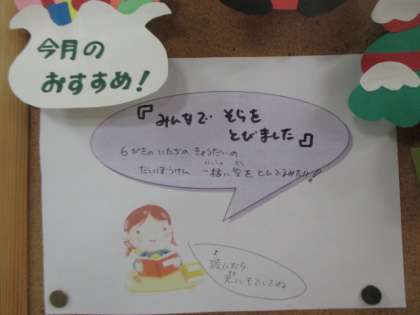 今月の
おすすめ！
『みんなで そらを
とびました』
6ぴきの いたちの きょうだいの
だいぼうけん 一緒に 空を とんでみたい！
いっしょ そら
読んだら
見にきてね